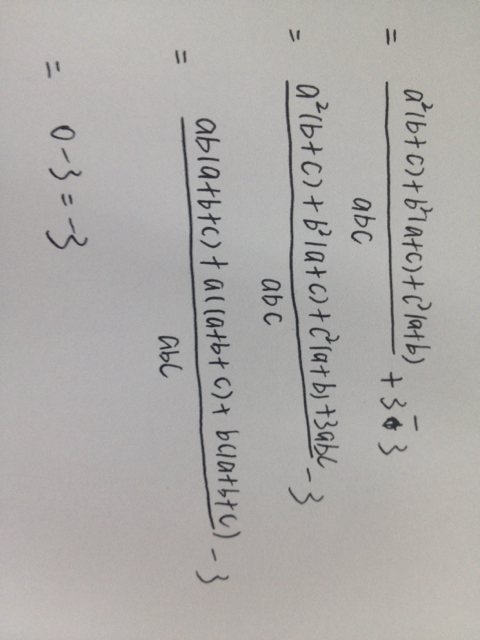 = a²(b+c)+b²(a+c)+c²(a+b) / abc + 3 - 3
= a²(b+c)+b²(a+c)+c²(a+b)+3abc / abc - 3
= ab(a+b+c)+ac(a+b+c)+bc(a+b+c) / abc - 3
= 0-3=-3